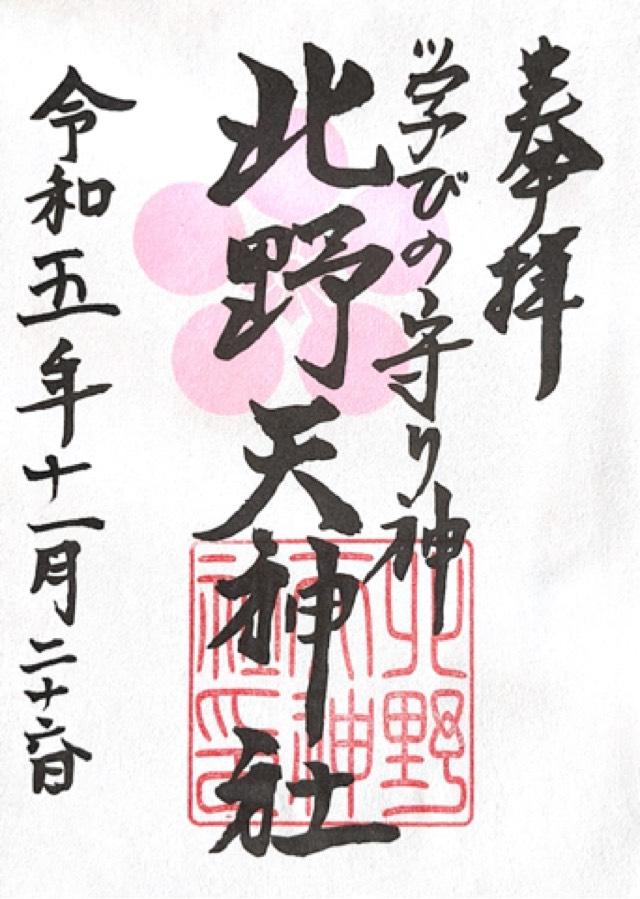 奉拝
学びの守り神
北野天神社
令和五年十一月二十六日
北野天神社印